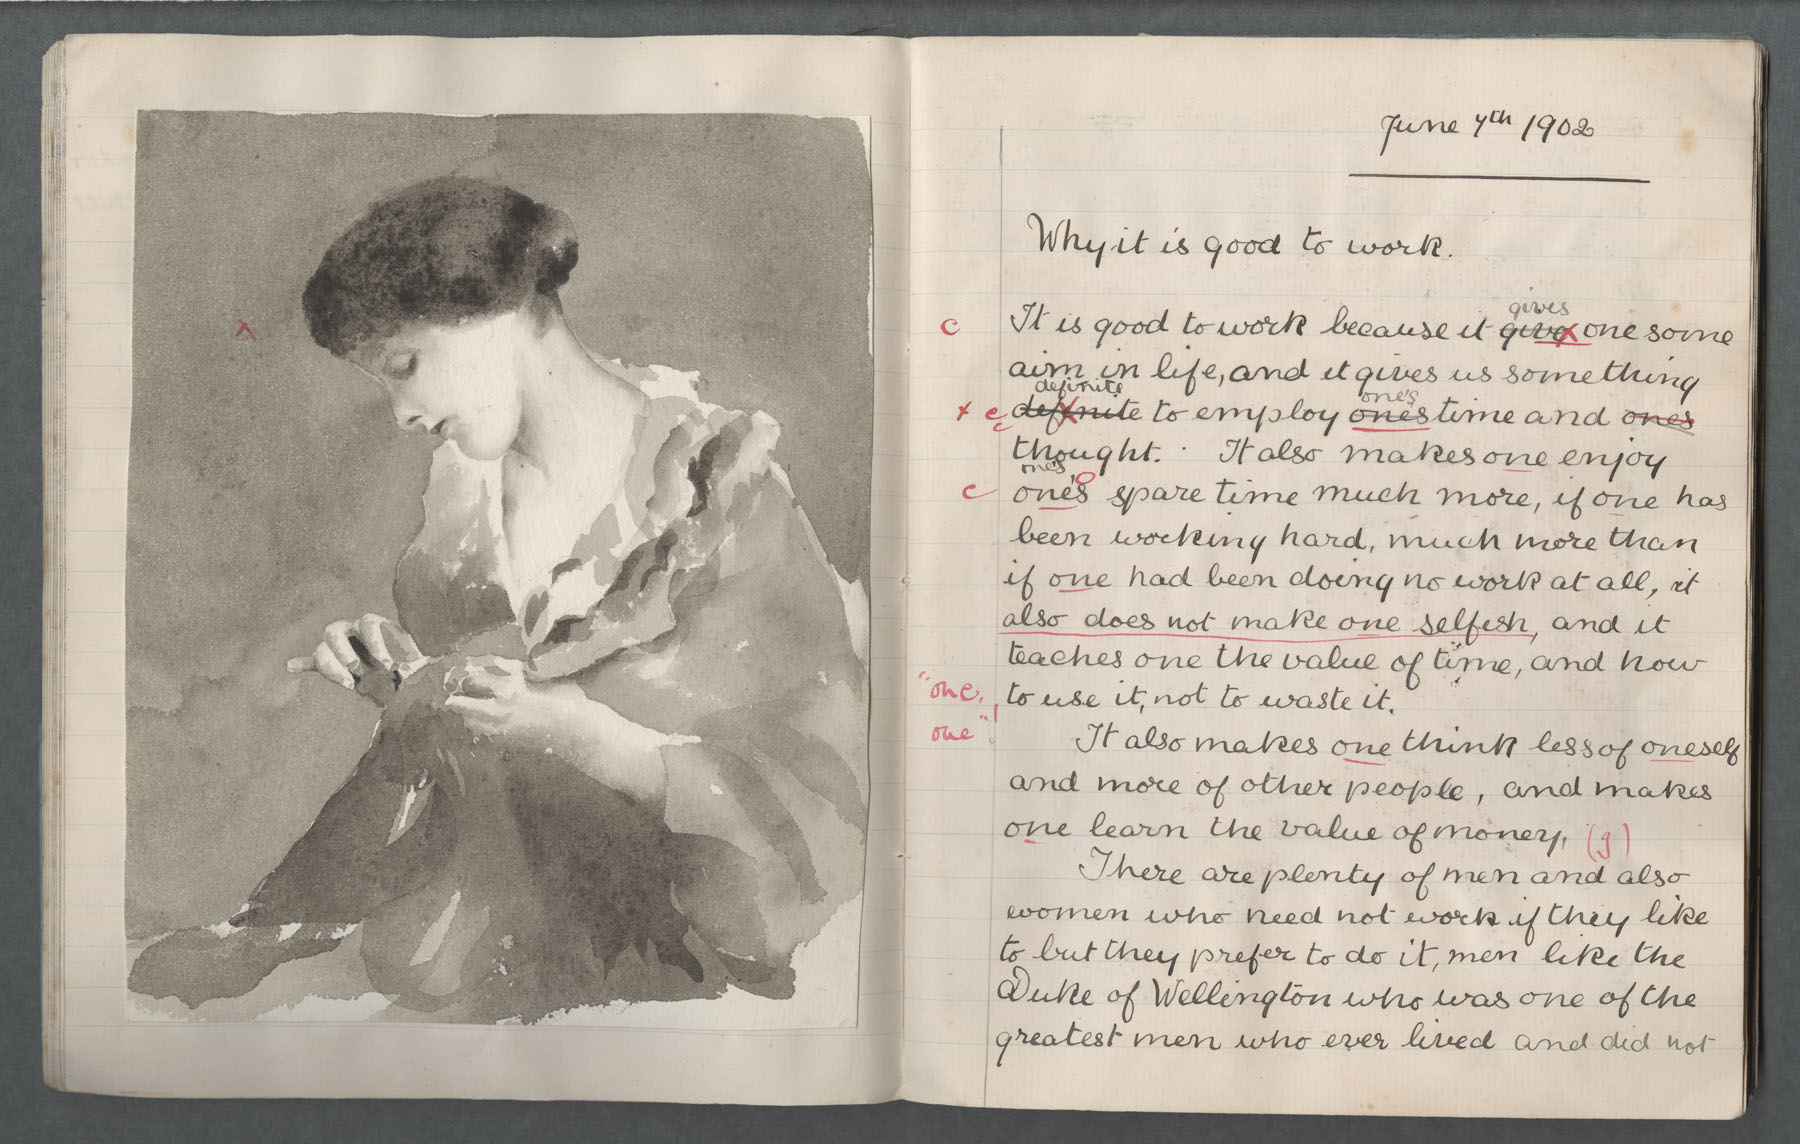 June 7th 1902
Why it is good to work.
gives
c It is good to work because it give one some
aim in life, and it gives us something
definite one's
x c definite to employ ones time and ones
c
thought. It also makes one enjoy
one's
c one's spare time much more, if one has
been working hard, much more than
if one had been doing no work at all, it
also does not make one selfish, and it
teaches one the value of time, and how
"one, to use it, not to waste it.
one"! It also makes one think less of oneself
and more of other people, and makes
one learn the value of money. (g)
There are plenty of men and also
women who need not work if they like
to but they prefer to do it, men like the
Duke of Wellington who was one of the
greatest men who ever lived and did not